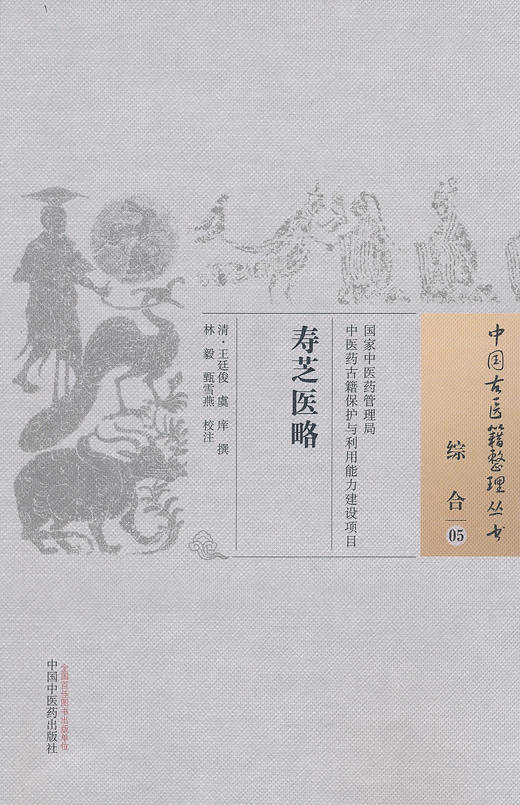 中国古医籍整理丛书
综合
05
国家中医药管理局
中医药古籍保护与利用能力建设项目
寿芝医略
清·王廷俊 虞庠 撰
林毅 甄雪燕 校注
全国百佳图书出版单位
中国中医药出版社